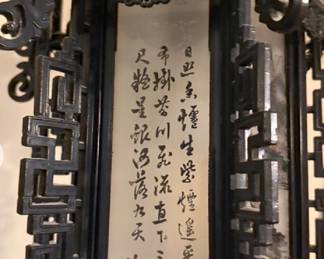 日照香爐生紫煙遙
布掛前川飛流直下三
尺疑是銀河落九天